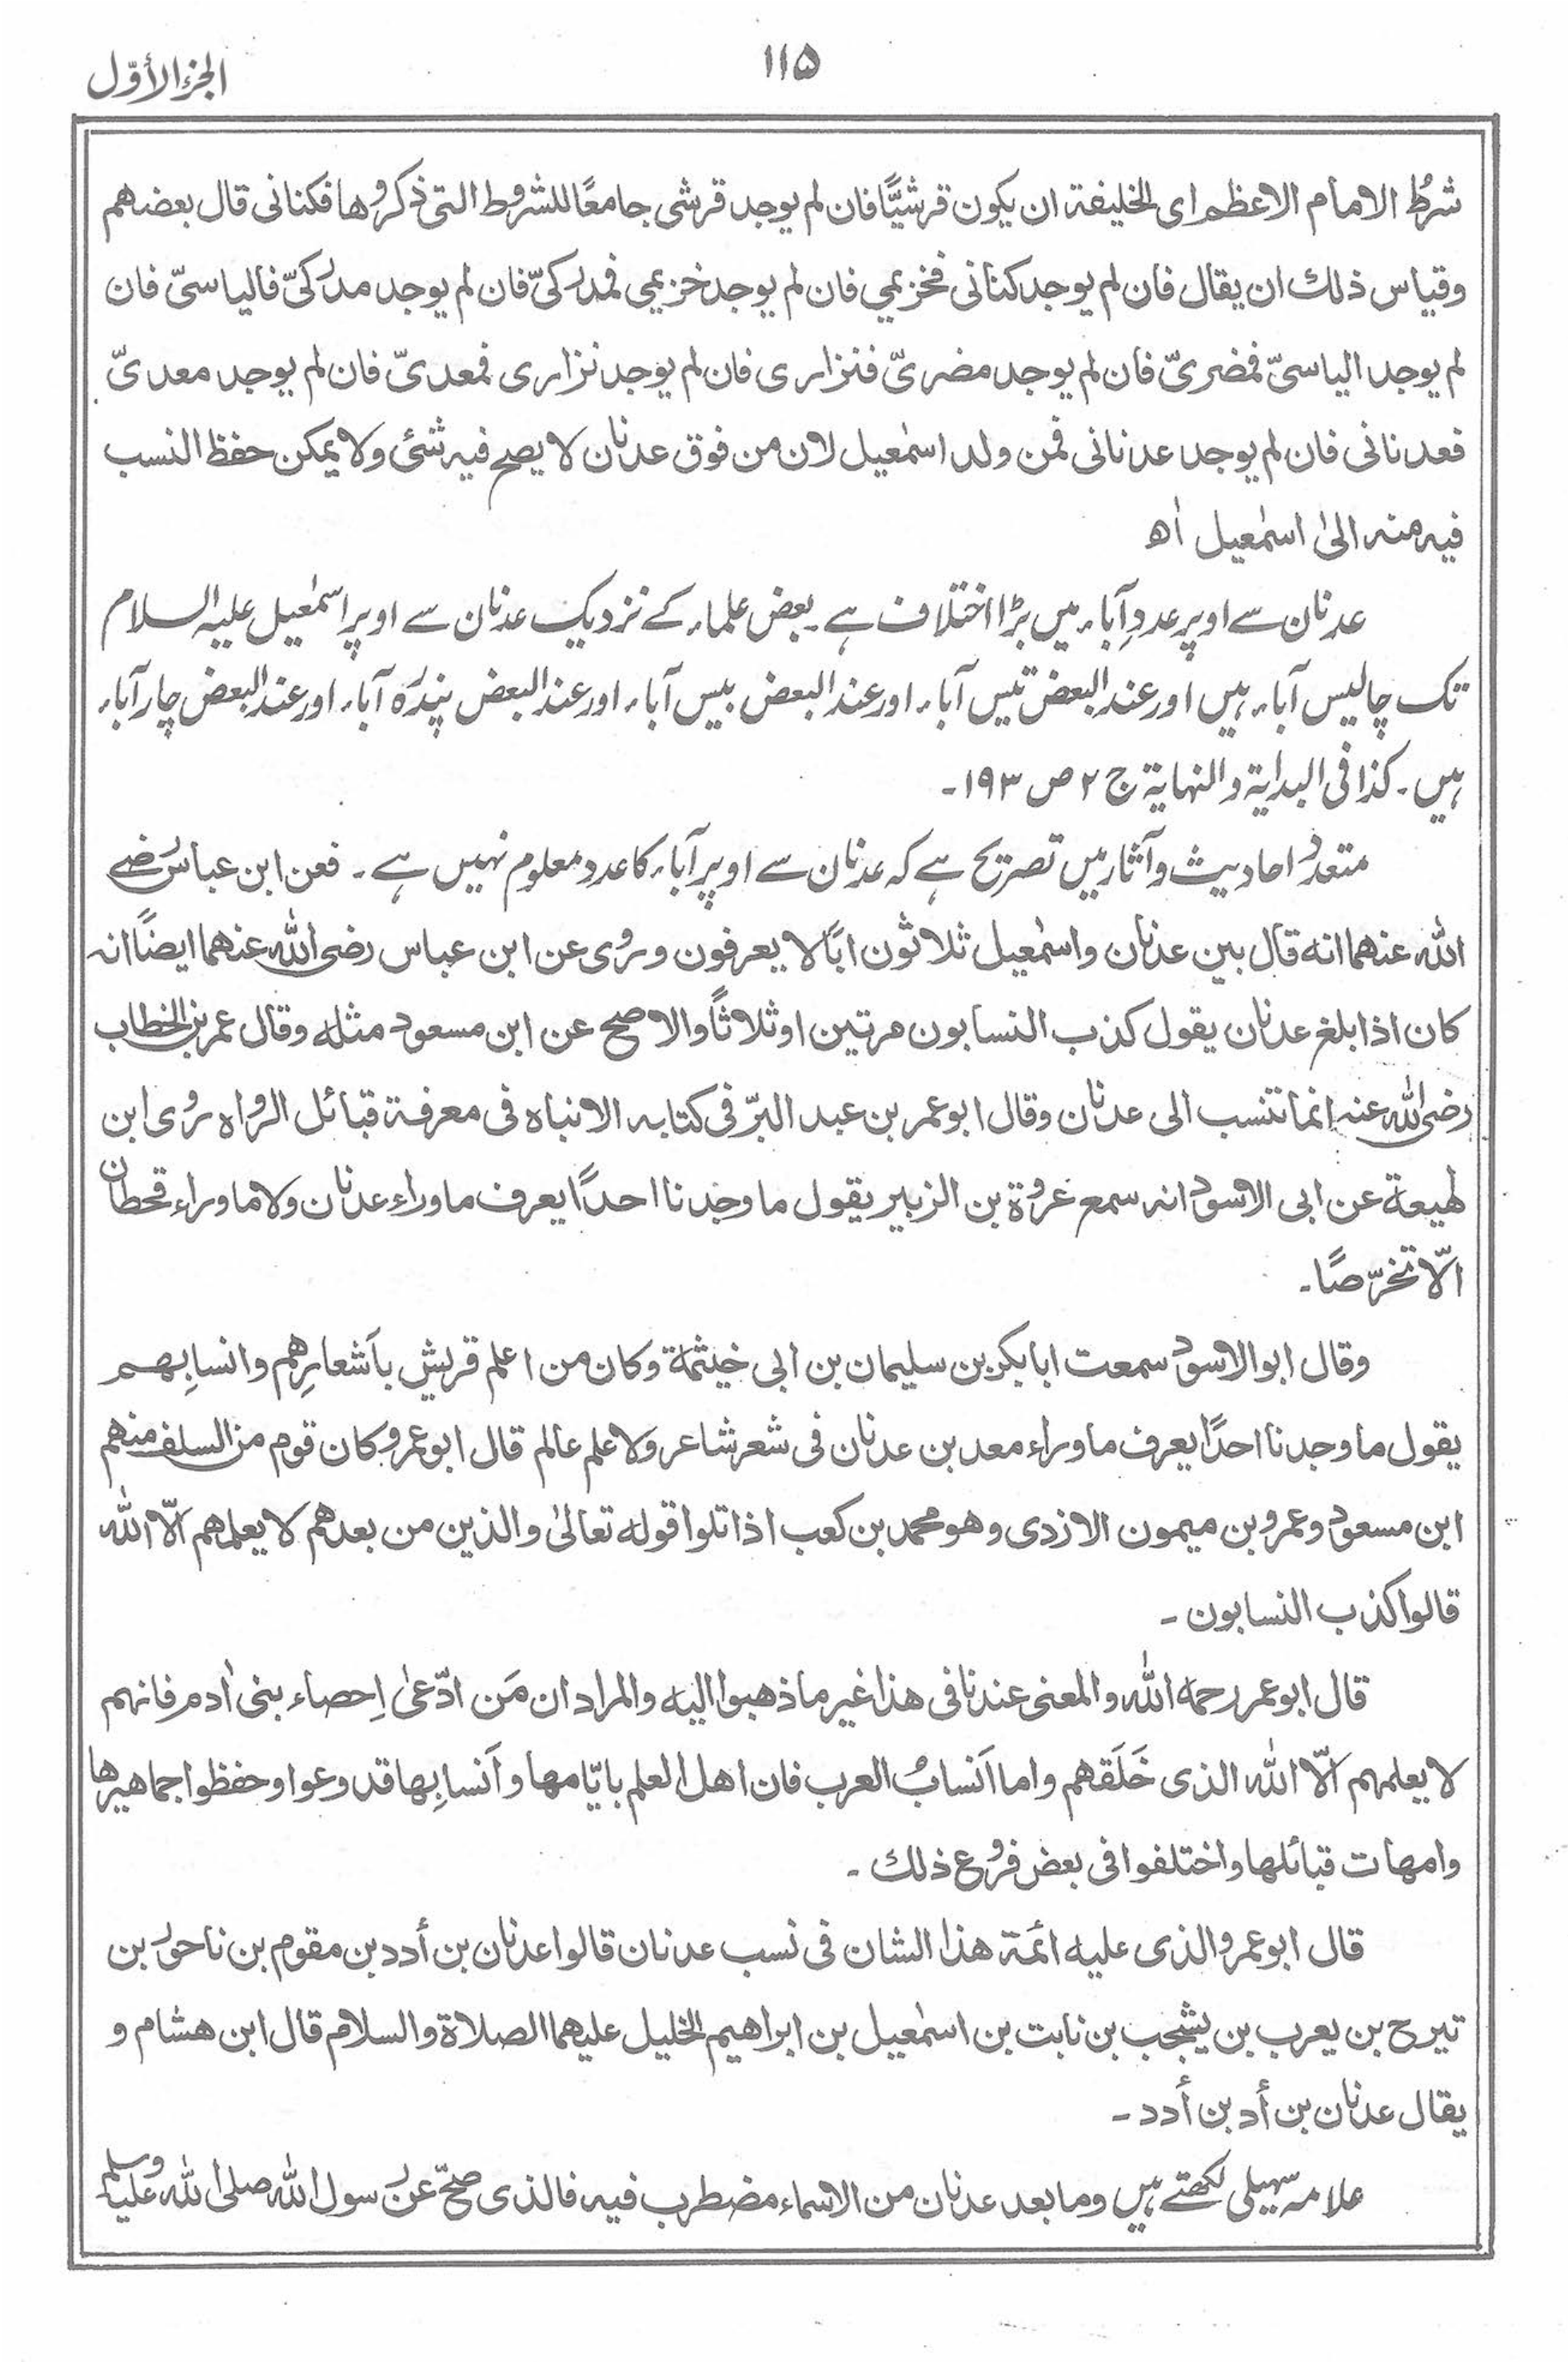 الجزء الأوّل
۱۱۵
شرطُ الامام الاعظم ای الخلیفة ان یکون قرشیًّا فان لم یوجد قرشی جامعًا للشروط التی ذکروها فکنانی قال بعضهم
وقیاس ذلك ان یقال فان لم یوجد کنانی فخزیمی فان لم یوجد خزیمی فمدرکیّ فان لم یوجد مدرکیّ فالیاسیّ فان
لم یوجد الیاسیّ فمضریّ فان لم یوجد مضریّ فنزاری فان لم یوجد نزاری فمعدیّ فان لم یوجد معدیّ
فعدنانی فان لم یوجد عدنانی فمن ولد اسمٰعیل لان من فوق عدنان لا یصح فیه شئی ولا یمکن حفظ النسب
فیه منه الیٰ اسمٰعیل اٰھ
عدنان سے اوپر عددِ آباء میں بڑا اختلاف ہے۔ بعض علماء کے نزدیک عدنان سے اوپر اسمٰعیل علیہ السلام
تک چالیس آباء ہیں اور عند البعض تیس آباء اور عند البعض بیس آباء اور عند البعض پندرَہ آباء اور عند البعض چار آباء
ہیں۔ کذا فی البدایة والنہایة ج ۲ ص ۱۹۳۔
متعدد احادیث و آثار میں تصریح ہے کہ عدنان سے اوپر آباء کا عدد معلوم نہیں ہے۔ فعن ابن عباس رضی
اللہ عنهما انه قال بین عدنان واسمٰعیل ثلاثون ابًا لا یعرفون وروی عن ابن عباس رضی اللہ عنهما ایضًا انه
کان اذا بلغ عدنان یقول کذب النسابون مرتین او ثلاثًا والاصح عن ابن مسعود مثله وقال عمر بن الخطاب
رضی اللہ عنه انما تنسب الی عدنان وقال ابوعمر بن عبد البرّ فی کتابه الانباه فی معرفة قبائل الرواه روی ابن
لهیعة عن ابی الاسود انه سمع عروة بن الزبیر یقول ما وجدنا احدًا یعرف ما وراء عدنان ولا ما وراء قحطان
الّا تخرّصًا۔
وقال ابو الاسود سمعت ابابکر بن سلیمان بن ابی خیثمة وکان من اعلم قریش باَشعارِهم وانسابِهم
یقول ما وجدنا احدًا یعرف ما وراء معد بن عدنان فی شعر شاعر ولا علم عالم قال ابوعمر وکان قوم من السلف منهم
ابن مسعود وعمرو بن میمون الازدی وهو محمد بن کعب اذا تلوا قوله تعالیٰ والذین من بعدهم لا یعلمهم الّا اللہ
قالوا کذب النسابون۔
قال ابوعمر رحمه اللہ والمعنی عندنا فی هذا غیر ما ذهبوا الیه والمراد ان مَن ادّعیٰ اِحصاء بنی اٰدم فانهم
لا یعلمهم الّا اللہ الذی خَلَقهم واما اَنسابُ العرب فان اهل العلم بایّامها واَنسابِها قد وعوا وحفظوا جماهیرها
وامهات قبائلها واختلفوا فی بعض فروع ذلك۔
قال ابوعمر والذی علیه ائمة هذا الشان فی نسب عدنان قالوا عدنان بن أدد بن مقوم بن ناحور بن
تیرح بن یعرب بن یشجب بن نابت بن اسمٰعیل بن ابراهیم الخلیل علیهما الصلاة والسلام قال ابن هشام و
یقال عدنان بن أد بن أدد۔
علامہ سہیلی لکھتے ہیں وما بعد عدنان من الاسماء مضطرب فیه فالذی صحّ عن رسول اللہ صلی اللہ علیه وسلم